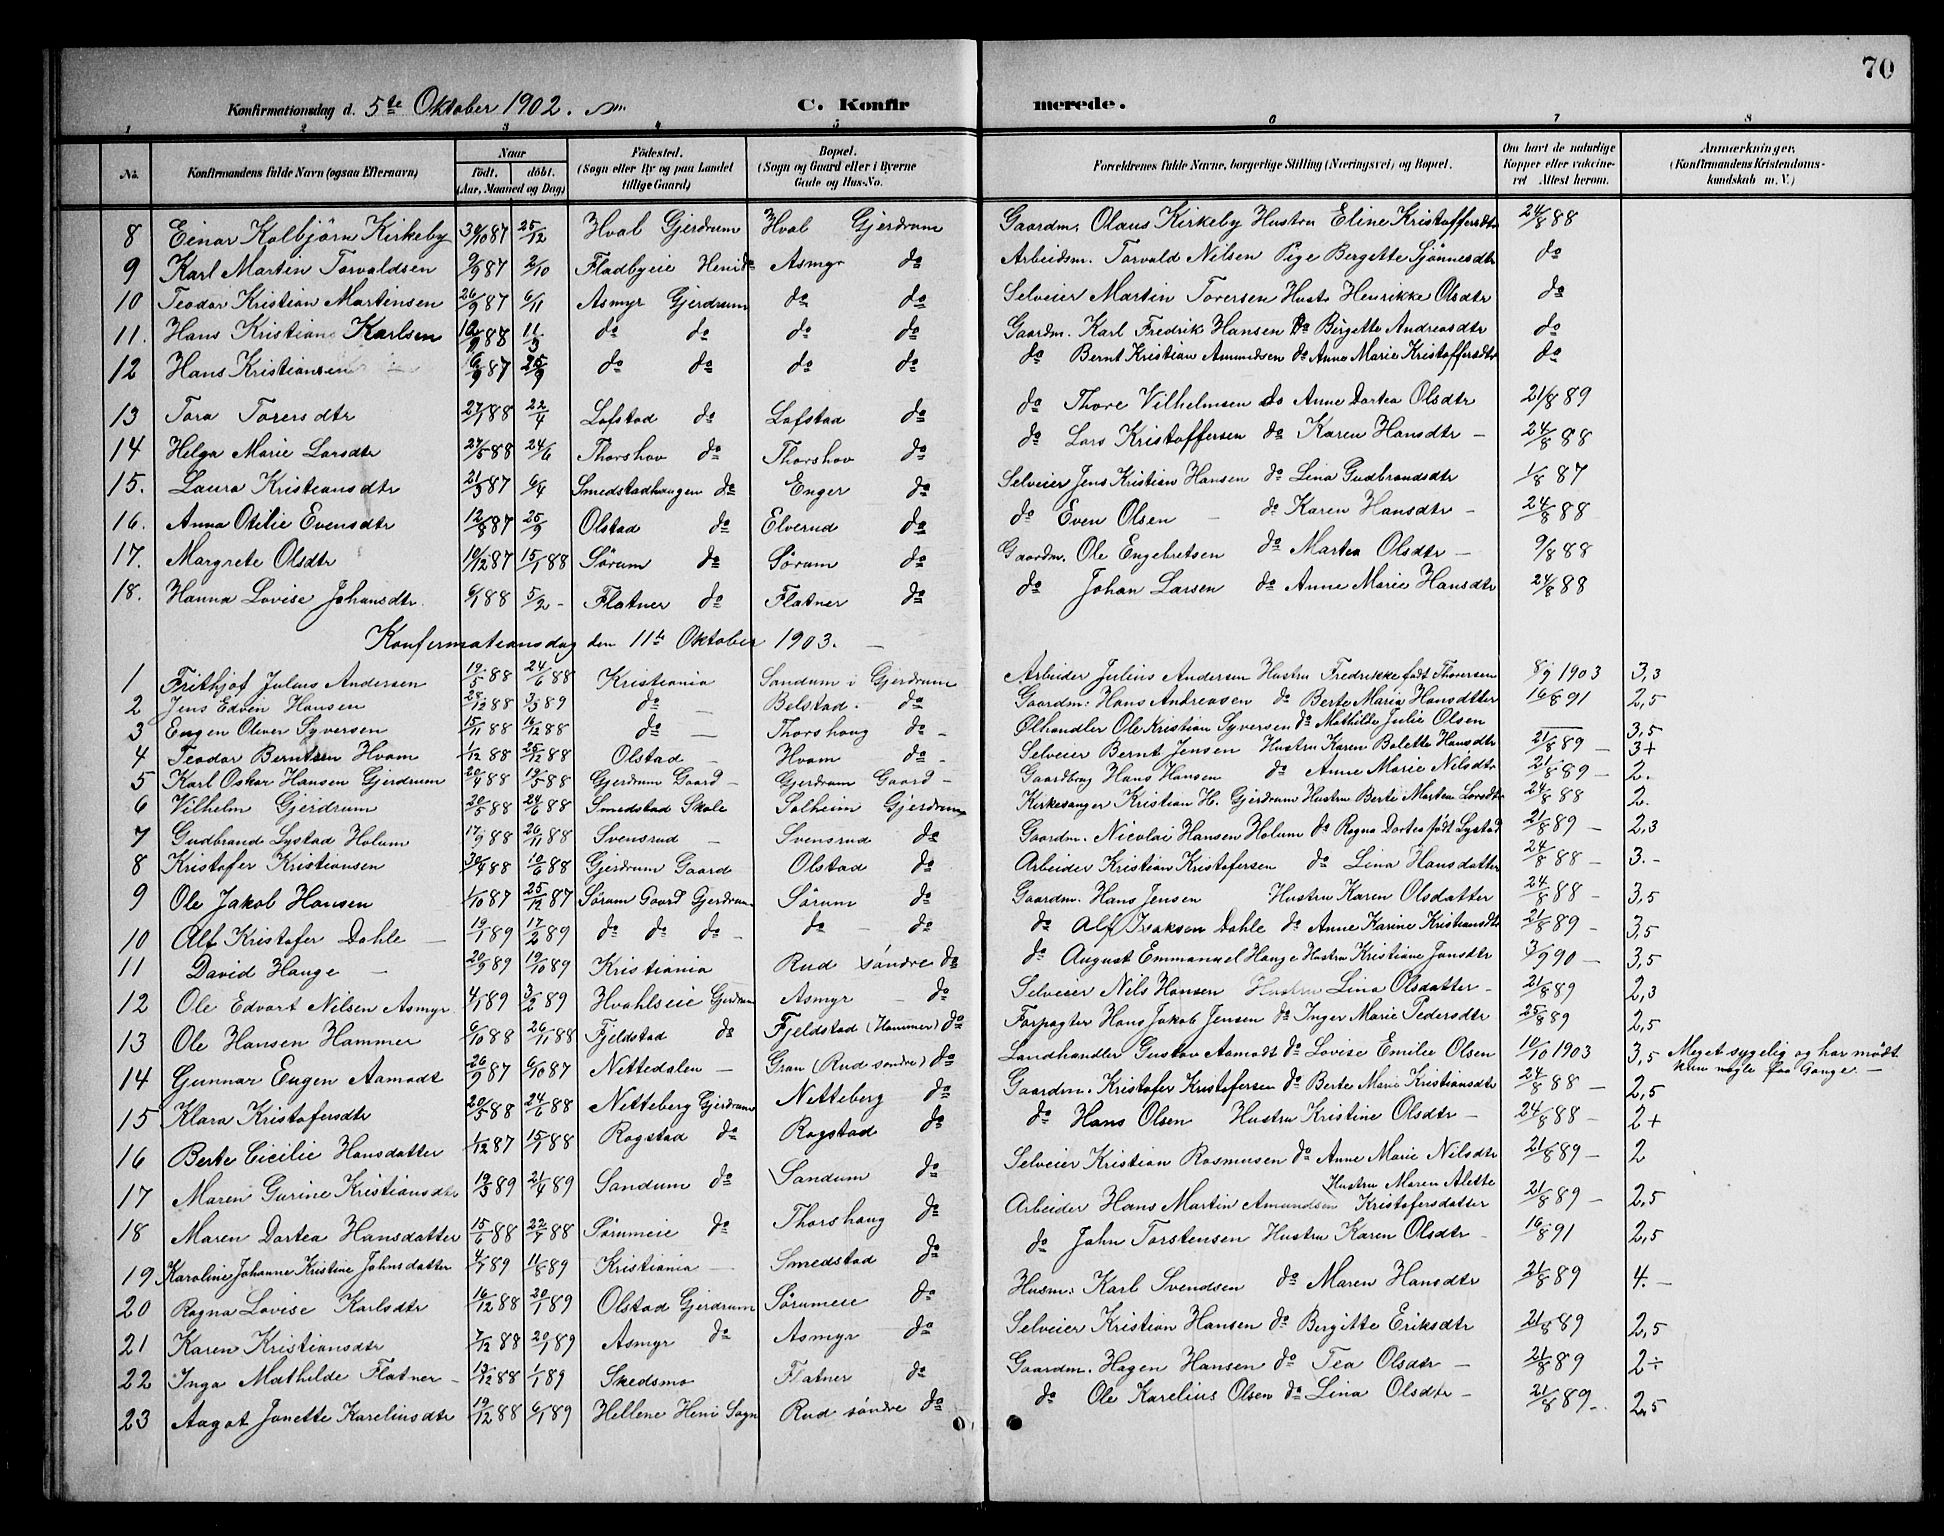 70
Konfirmationsdag d. 5te Oktober 1902. C. Konfirmerede.
1 2 3 4 5 6 7 8
No. Konfirmandens fulde Navn (ogsaa Efternavn) Naar født. døbt. (Aar, Maaned og Dag) Fødested. (Sogn eller By og paa Landet tillige Gaard) Bopæl. (Sogn og Gaard eller i Byerne Gade og Hus-No. Forældrenes fulde Navne, borgerlige Stilling (Næringsvei) og Bopæl. Om havt de naturlige Kopper eller vaccineret Attest herom. Anmerkninger. (Konfirmandens Kristendomskundskab m. V.)
8 Einar Kolbjörn Kirkeby 30/10 87 25/12 Hval Gjerdrum Hval Gjerdrum Gaardm. Olaus Kirkeby Hustru Eline Kristoffersdtr 24/8 88
9 Karl Martin Torvaldsen 9/9 87 2/10 Fladbyeie Heni do Asmyr do Arbeidsm. Torvald Nilsen Pige Bergette Sjönnesdtr do
10 Teodor Kristian Martinsen 26/9 87 6/11 Asmyr Gjerdrum do do Selveier Martin Toresen Hustr Henrikke Olsdtr do
11. Hans Kristian Karlsen 88 11/3 do do do do Gaardm. Karl Fredrik Hansen do Bergette Andreasdtr do
12 Hans Kristiansen 6/9 87 25/9 do do do do do Bernt Kristian Amundsen do Anne Marie Kristoffersdtr do
13 Tora Toresdtr 27/1 88 22/4 Lofstad do Lofstad do do Thore Vilhelmsen do Anne Dortea Olsdtr 21/8 89
14 Helga Marie Larsdtr 27/5 88 24/6 Thorshov do Thorshov do do Lars Kristoffersen do Karen Hansdtr - 24/8 88
15. Laura Kristiansdtr 21/3 87 6/4 Smedstadhaugen do Enger do Selveier Jens Kristian Hansen do Lina Gudbrandsdtr 1/8 87
16. Anna Otilie Evensdtr 12/8 87 25/9 Olstad do Elverud do do Even Olsen - do Karen Hansdtr - 24/8 88
17. Margrete Olsdtr 10/12 87 15/1 88 Sörum do Sörum do Gaardm. Ole Engebretsen do Martea Olsdtr - 9/8 88
18. Hanna Lovise Johansdtr. 6/1 88 5/2 - Flatner do Flatner do do Johan Larsen do Anne Marie Hansdtr 24/8 88
Konfermationsdag den 11te Oktober 1903. -
1 Frithjof Julius Andersen 19/5 88 24/6 88 Kristiania Sandum i Gjerdrum Arbeider Julius Andersen Hustru Fredrikke født Thoresen 8/9 1903 3,3
2 Jens Edven Hansen 28/12 88 3/3 89 do - Belstad. do Gaardm: Hans Andreasen do Berte Maria Hansdtter 16/8 91 2,5
3 Eugen Oliver Syversen 15/11 88 16/12 88 do - Thorshaug do - Ølhandler Ole Kristian Syversen do Mathilde Julie Olsen 3,5
4 Teodor Berntsen Hvam 1/12 88 25/12 88 Olstad - Hvam do - Selveier Bernt Jensen Hustru Karen Bolette Hansdtr 21/8 89 - 3+
5 Karl Oskar Hansen Gjerdrum 20/4 88 19/5 88 Gjerdrum Gaard - Gjerdrum Gaard - Gaardbrug Hans Hansen do Anne Marie Nilsdtr 21/8 89 - 2.
6 Vilhelm Gjerdrum 20/5 88 24/6 88 Smedstad Skole Solheim Gjerdrum Kirkesanger Kristian H. Gjerdrum Hustru Berte Martea Larsdtr 24/8 88 2.
7 Gudbrand Lystad Holum 17/9 88 26/11 88 Svensrud - Svensrud do Gaardm. Nicolai Hansen Holum do Ragna Dortea født Lystad 21/8 89 - 2,3
8 Kristofer Kristiansen 30/4 88 10/6 88 Gjerdrum Gaard Olstad do Arbeider Kristian Kristofersen do Lina Hansdatter 24/8 88 - 3. -
9 Ole Jakob Hansen 1/10 87 25/12 87 Sörum Gaard Gjerdrum Sörum do Gaardm. Hans Jensen Hustru Karen Olsdatter 24/8 88 - 3,5
10 Alf Kristofer Dahle - 19/1 89 17/2 89 do do do - do - do do Alf Isaksen Dahle do Anne Karine Kristiansdtr 21/8 89 - 3,5
11 David Hauge - 20/9 89 19/10 89 Kristiania Rud søndre do do August Emmanuel Hauge Hustru Kristiane Jansdtr 3/9 90 - 3,5
12 Ole Edvart Nilsen Asmyr 4/1 89 3/2 89 Hvahlseie Gjerdrum Asmyr - do Selveier Nils Hansen Hustru Lina Olsdatter - 21/8 89 2,3
13 Ole Hansen Hammer 6/10 88 26/11 88 Fjeldstad do Fjeldstad (Hammer) do Forpagter Hans Jakob Jensen do Inger Marie Pedersdtr 25/8 89 2,5
14 Gunnar Eugen Aamodt 26/9 87 6/10 87 Nettedalen - Gran (Rud søndre) do Landhandler Gustav Aamodt do Lovise Emilie Olsen 10/10 1903 3,5 Meget sygelig og har mødt kun nogle faa Gange. -
15 Klara Kristofersdtr 20/5 88 24/6 88 Netteberg Gjerdrum Netteberg do Gaardm. Kristofer Kristofersen do Berte Marie Kristiansdtr 24/8 88 - 2,5
16 Berte Cicilie Hansdatter 1/12 87 15/1 88 Rogstad do Rogstad do do Hans Olsen Hustru Kristine Olsdtr - 24/8 88 - 2+
17 Maren Gurine Kristiansdtr 19/3 89 21/4 89 Sandum do Sandum do Selveier Kristian Rasmusen do Anne Marie Nilsdtr 21/8 89 - 2
18 Maren Dortea Hansdatter 15/6 88 22/7 88 Sörumeie do Thorshaug do Arbeider Hans Martin Amundsen Hustru Maren Alette Kristofersdatter 21/8 89 - 2,5
19 Karoline Johanne Kristine Johnsdatter 4/7 89 11/8 89 Kristiania - Smedstad do do John Torstensen Hustru Karen Olsdtr - 16/8 91 2,5
20 Ragna Lovise Karlsdtr 16/12 88 20/1 89 Olstad Gjerdrum Sörumeie do Husm: Karl Svendsen do Maren Hansdtr 21/8 89 4. -
21 Karen Kristiansdtr 7/12 88 20/1 89 Asmyr do Asmyr do Selveier Kristian Hansen do Bergitte Eriksdtr 21/8 89 2,5
22 Inga Mathilde Flatner - 12 88 1/1 89 Skedsmo Flatner do Gaardm. Hagen Hansen do Tea Olsdtr - 21/8 89 2÷
23 Aagot Janette Kareliusdtr 19/12 88 6/1 89 Hellene Heni Sogn Rud søndre do do Ole Karelius Olsen do Lina Olsdtr - 21/8 89 - 2,5